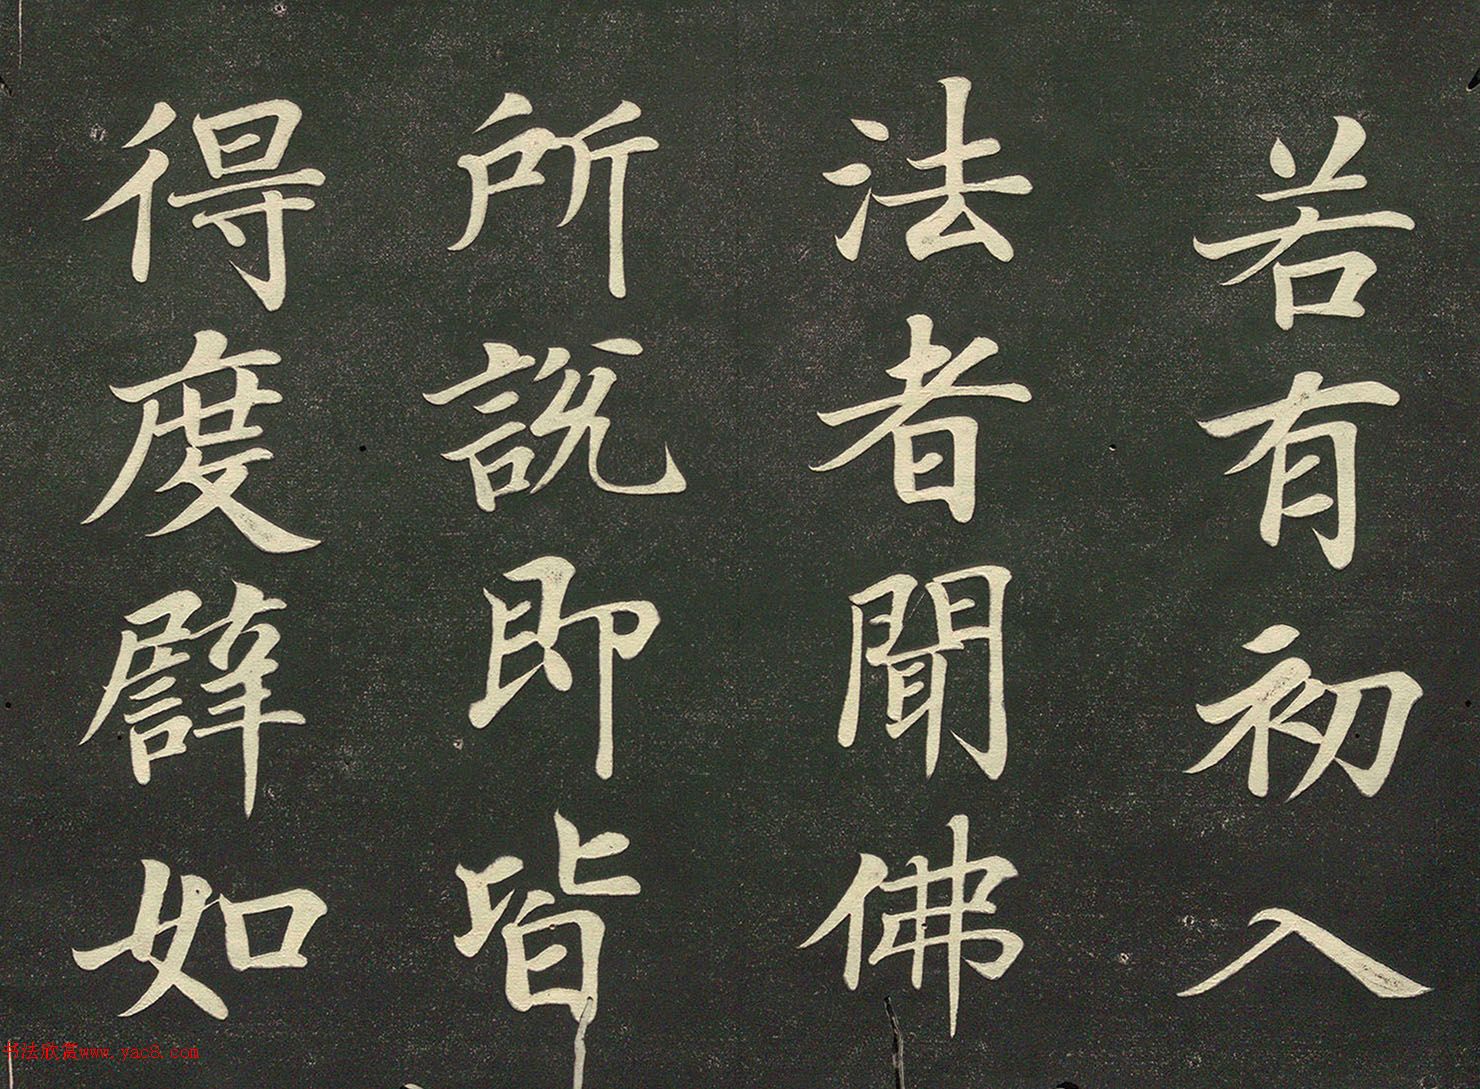 若有初入
法者聞佛
所說即皆
得度譬如
书法欣赏www.yac8.com